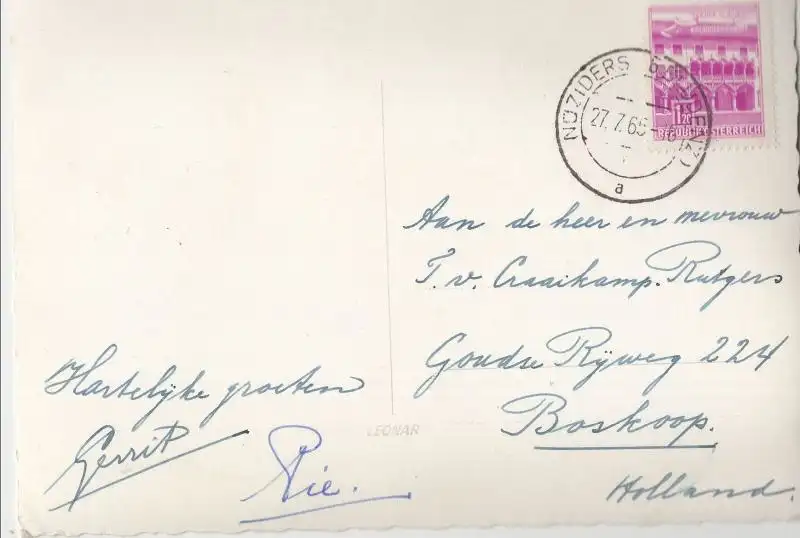 NÜZIDERS
27.7.65
a
1.20
REPUBLIK ÖSTERREICH
Aan de heer en mevrouw
T. v. Craaikamp-Rutgers
Goudse Rijweg 224
Boskoop.
Holland.
Hartelijke groeten
Gerrit
Rie.
LEONAR